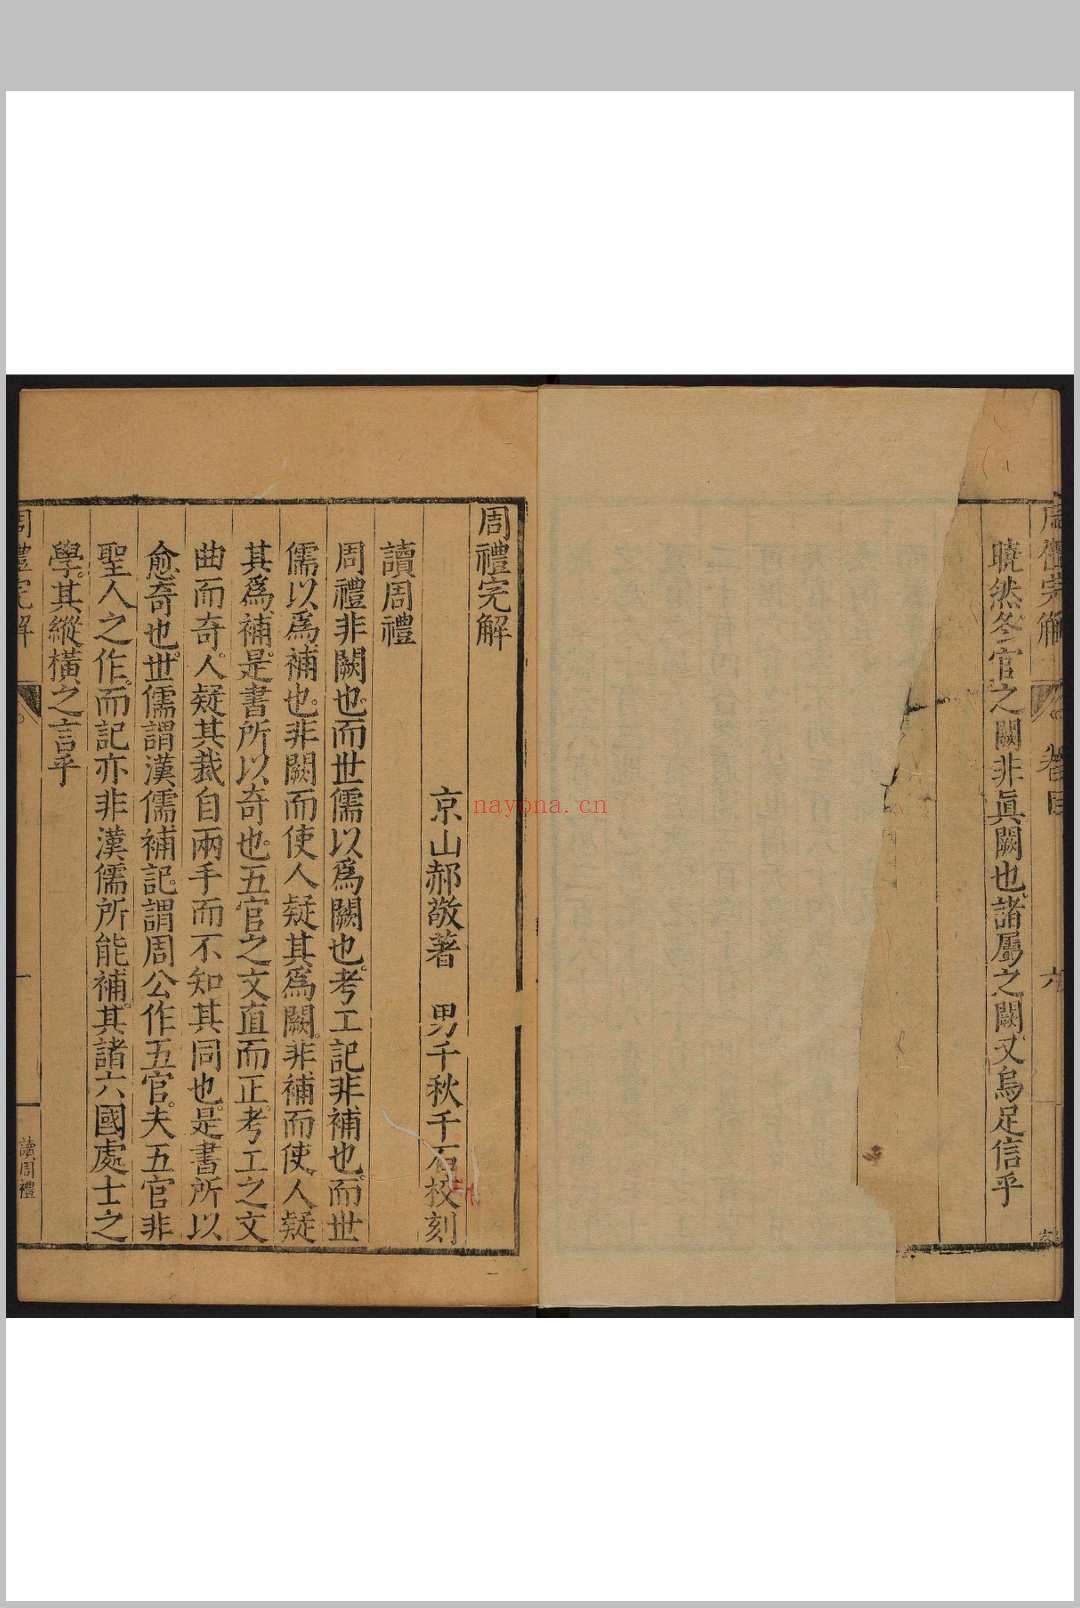 周禮完解
六
曉然冬官之闕非眞闕也諸屬之闕又烏足信乎
周禮完解
京山郝敬著　男千秋千石校刻
讀周禮
周禮非闕也而世儒以爲闕也考工記非補也而世
儒以爲補也非闕而使人疑其爲闕非補而使人疑
其爲補是書所以奇也五官之文直而正考工之文
曲而奇人疑其裁自兩手而不知其同也是書所以
愈奇也世儒謂漢儒補記謂周公作五官夫五官非
聖人之作而記亦非漢儒所能補其諸六國處士之
學其縱橫之言乎
周禮完解
讀周禮
nayona.cn